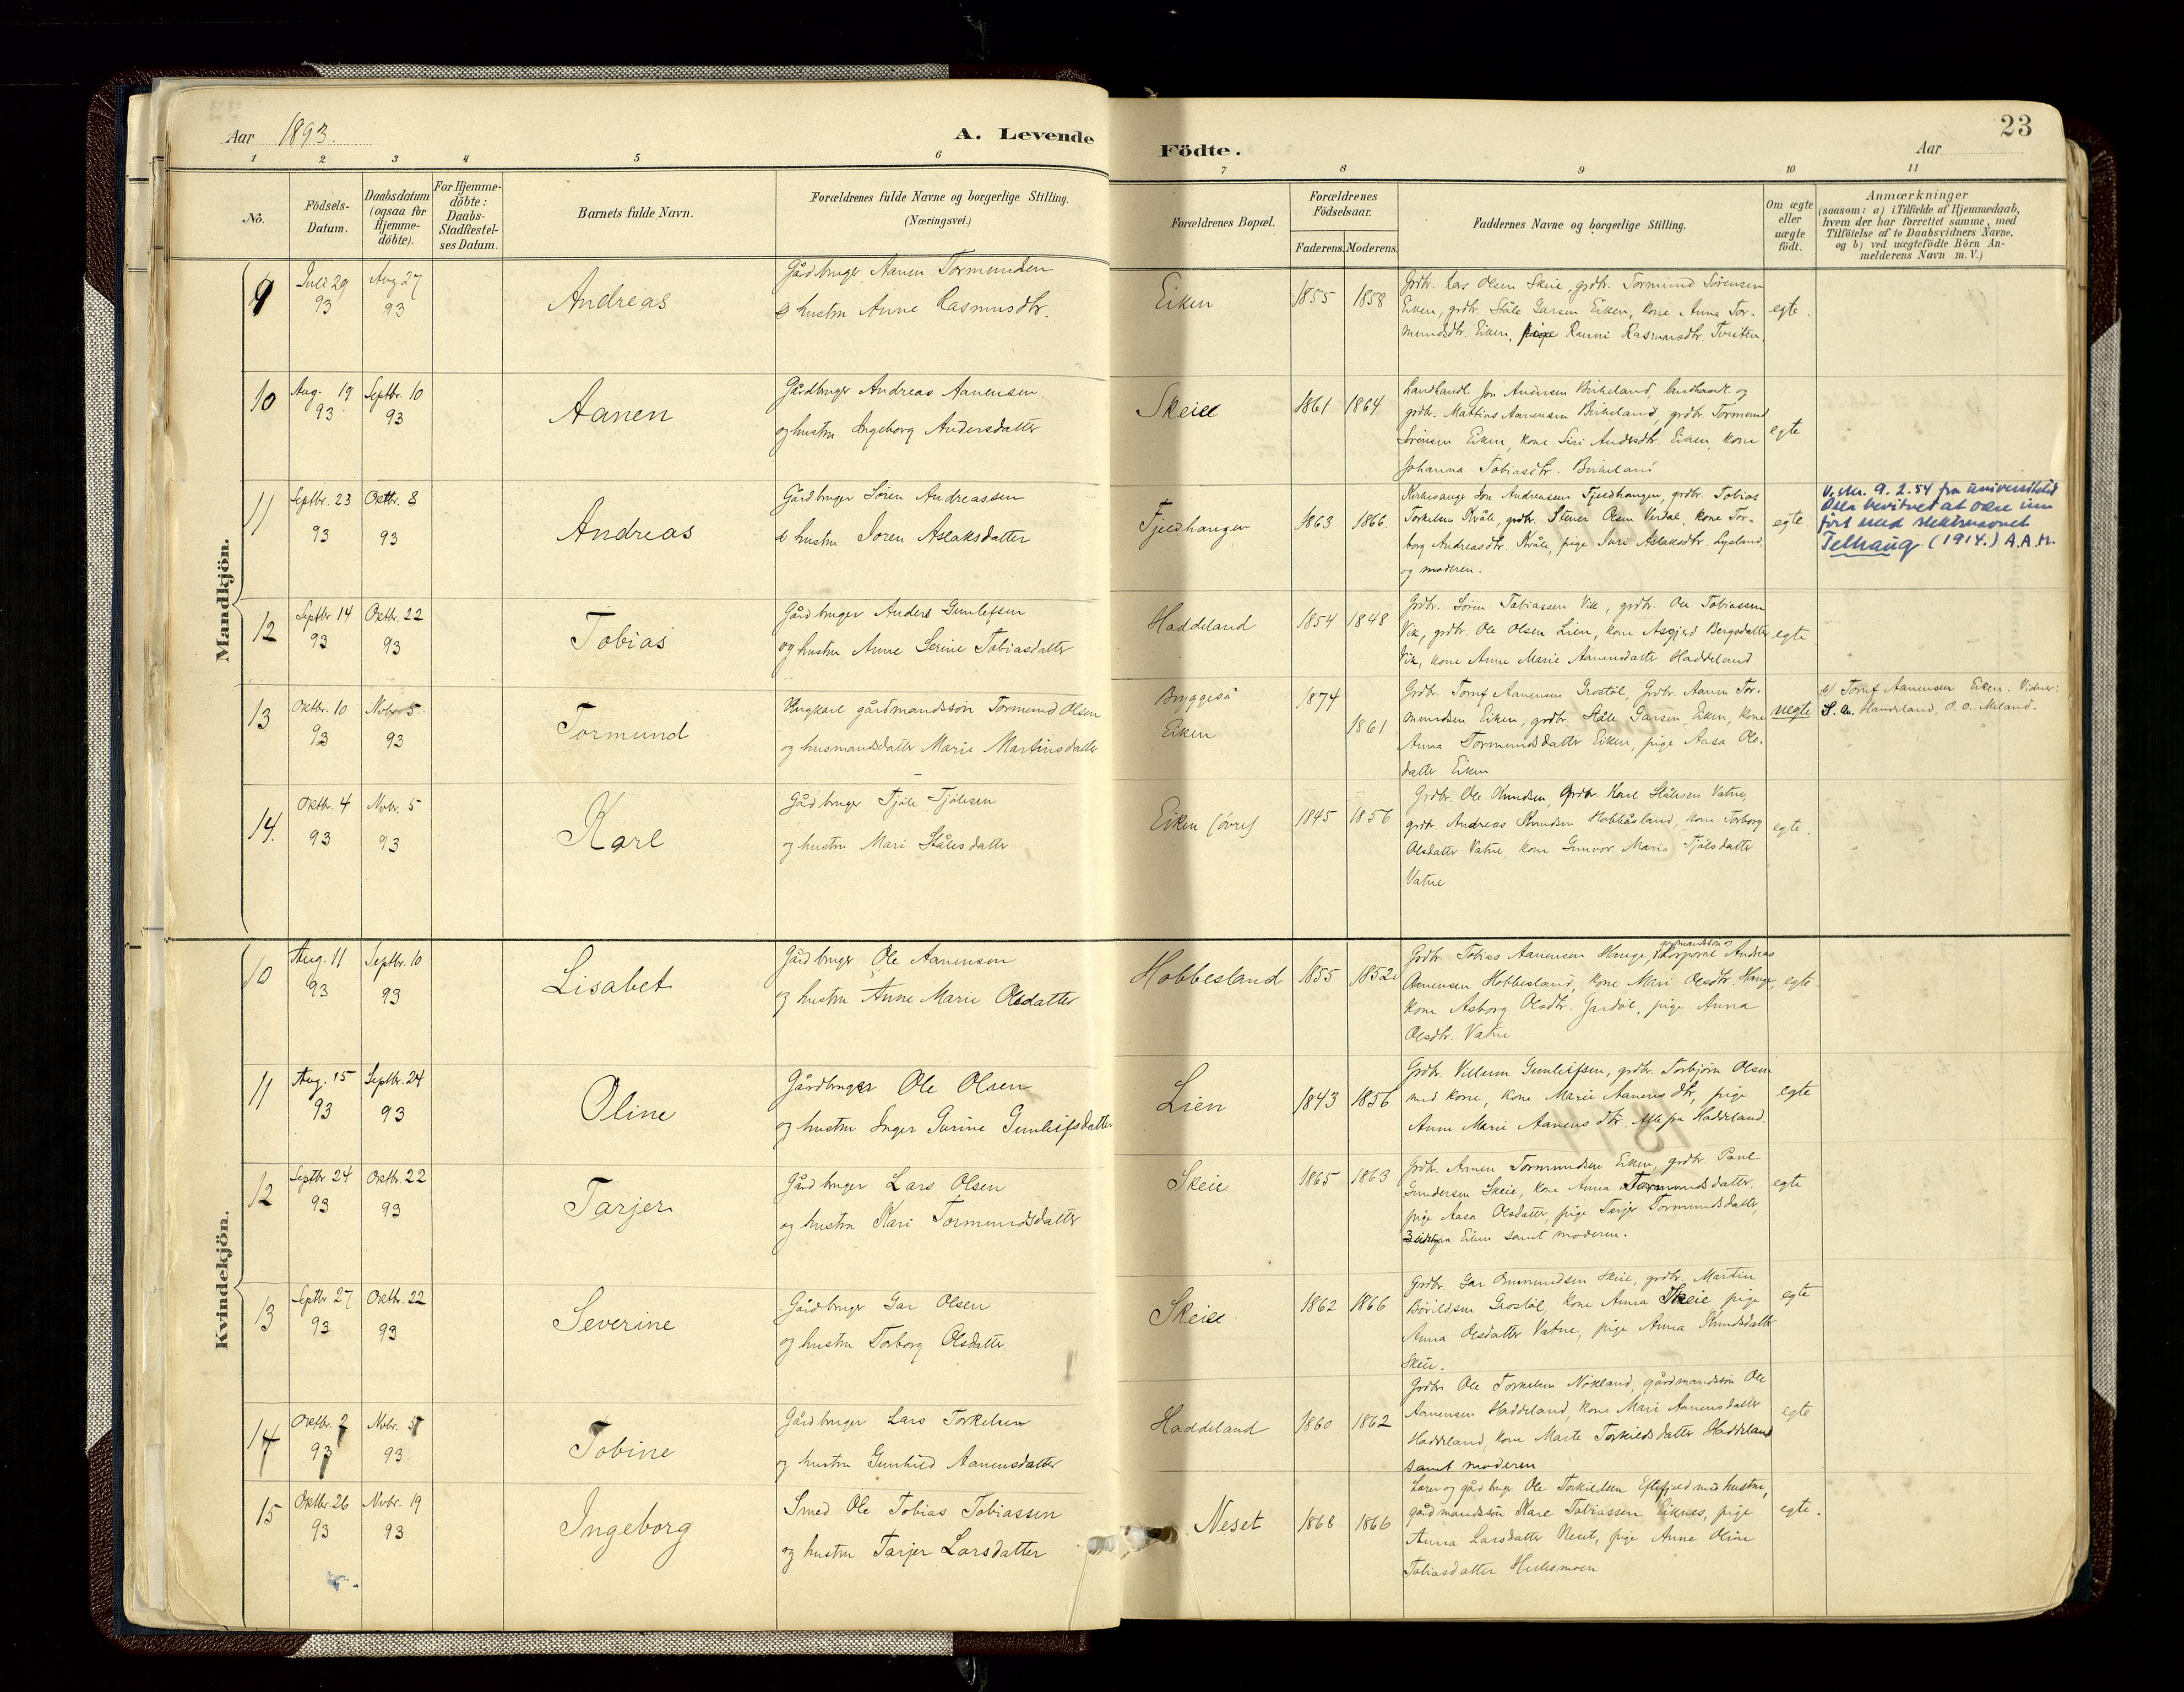 23
Aar 1893.
A. Levende
Födte.
Aar
1 2 3 4 5 6 7 8 9 10 11
No.
Födsels-
Datum.
Daabsdatum
(ogsaa for
Hjemme-
döbte).
For Hjemme-
döbte:
Daabs-
Stadfæstel-
ses Datum.
Barnets fulde Navn.
Forældrenes fulde Navne og borgerlige Stilling.
(Næringsvei.)
Forældrenes Bopæl.
Forældrenes
Födselsaar.
Faderens. Moderens.
Faddernes Navne og borgerlige Stilling.
Om ægte
eller
uægte
födt.
Anmærkninger
(saasom: a) i Tilfælde af Hjemmedaab,
hvem der har forrettet samme, med
Tilföielse af to Daabsvidners Navne.
og b) ved uægtefödte Börn An-
melderens Navn m. V.)
Mandkjön.
9
Juli 29
93
Aug 27
93
Andreas
Gårdbruger Aanen Tormundsen
og hustru Anne Rasmusdtr.
Eiken
1855 1858
Grdbr. Lars Olsen Skeie, grdbr. Tormund Sörensen
Eiken, grdbr. Ståle Garsen Eiken, kone Anna Tor-
mundsdtr. Eiken, pige Ranni Rasmusdtr. Tveiten.
egte.
10
Aug. 19
93
Septbr. 10
93
Aanen
Gårdbruger Andreas Aanensen
og hustru Ingeborg Andersdatter
Skeie
1861 1864
Landhandl. Jon Andersen Birkeland, landhandl. og
grdbr. Mathias Aanensen Birkeland, grdbr. Tormund
Sörensen Eiken, kone Siri Andsdtr. Eiken, kone
Johanna Tobiasdtr. Birkeland
egte
11
Septbr. 23
93
Oktbr. 8
93
Andreas
Gårdbruger Sören Andreassen
og hustru Soren Aslaksdatter
Fjeldhaugen
1863 1866.
Kirkesanger Jon Andreassen Fjeldhaugen, grdbr. Tobias
Torkelsen Kvåle, grdbr. Stener Olsen Verdal, kone Tor-
borg Andreasdtr. Kvåle, pige Siri Aslaksdtr. Lysland,
og moderen.
egte.
V. skr. 9. 2. 54 fra universitetet
Oslo bevitnet at Olse inn
ført med slektsnavnet
Telhaug (1914.) A.A.H.
12
Septbr 14
93
Oktbr. 22
93
Tobias
Gårdbruger Anders Gunlefsen
og hustru Anne Serine Tobiasdatter
Haddeland
1854 1848
Grdbr. Sören Tobiassen Vik, grdbr. Ole Tobiassen
Vik, grdbr. Ole Olsen Lien, kone Asgjerd Bergsdatter
Vik, kone Anne Marie Aanensdatter Haddeland
egte
13
Oktbr. 10
93
Nvbr. 5
93
Tormund
Ungkarl gårdmandssön Tormund Olsen
og husmandsdatter Marie Martinsdatter
Bryggeså
Eiken
1874
1861
Grdbr. Tomf Aanensen Grostöl, Grdbr. Aanen Tor-
mundsen Eiken, grdbr. Ståle Garsen Eiken, kone
Anna Tormundsdatter Eiken, pige Aasa Ols-
datter Eiken
uegte
b) Tomf Aanensen Eiken. Vidner:
S. An. Haddeland, O. O. Meland.
14.
Oktbr. 4
93
Nvbr. 5
93
Karl
Gårdbruger Tjöls Tjölssen
og hustru Mari Stålesdatter
Eiken (övre)
1845 1856
Grdbr. Ole Knudsen, Grdbr. Karl Stålesen Vatne,
grdbr. Andreas Knudsen Hobbesland, kone Torborg
Olsdatter Vatne, kone Gunvor Maria Tjölsdatter
Vatne
egte.
Kvindekjön.
10
Aug. 11
93
Septbr. 10
93
Lisabet
Gårdbruger Ole Aanensen
og hustru Anne Marie Olsdatter
Hobbesland
1855 1852
Grdbr. Tobias Aanensen Hauge, gårdmandssön og Korporal Andreas
Aanensen Hobbesland, kone Mari Olsdtr. Hauge,
kone Asborg Olsdtr. Gardöl, pige Anna
Olsdtr. Vatne
egte.
11
Aug. 15
93
Septbr. 24
93
Oline
Gårdbruger Ole Olsen
og hustru Inger Gurine Gunleifsdatter
Lien
1843 1856
Grdbr. Villum Gunleifsen, grdbr. Torbjörn Olsen
med kone, kone Marie Aanensdtr, pige
Anne Marie Aanensdtr. Alle fra Haddeland.
egte
12
Septbr 24
93
Oktbr. 22
93
Tarjer
Gårdbruger Lars Olsen
og hustru Kari Tormundsdatter
Skeie
1865 1863
Grdbr. Aanen Tormundsen Eiken, grdbr. Paul
Gundersen Skeie, kone Anna Tormundsdatter,
pige Aasa Olsdatter, pige Tarjer Tormundsdatter,
3 sidste fra Eiken samt moderen.
egte
13
Septbr 27
93
Oktbr. 22
93
Severine
Gårdbruger Gar Olsen
og hustru Torborg Olsdatter
Skeie
1862 1866
Grdbr. Gar Ommundsen Skeie, grdbr. Martin
Börildsen Grostöl, kone Anna Skeie, pige
Anna Olsdatter Vatne, pige Anna Knudsdatter
Skeie.
egte
14
Oktbr. 7
93
Nvbr. 5
93
Tobine
Gårdbruger Lars Torkelsen
og hustru Gunhild Aanensdatter
Haddeland
1860 1862
Grdbr. Ole Torkelsen Nökland, gårdmandssön Ole
Aanensen Haddeland, kone Mari Aanensdatter
Haddeland, kone Marte Torkildsdatter Haddeland
samt moderen
egte
15
Oktbr. 26
93
Nvbr. 19
93
Ingeborg
Smed Ole Tobias Tobiassen
og hustru Tarjer Larsdatter
Neset
1868 1866
Lærer og gårdbruger Ole Torkildsen Eftefjeld med hustru,
gårdmandssön Karl Tobiassen Eiknes, pige
Anna Larsdatter Neset, pige Anne Oline
Tobiasdatter
egte.